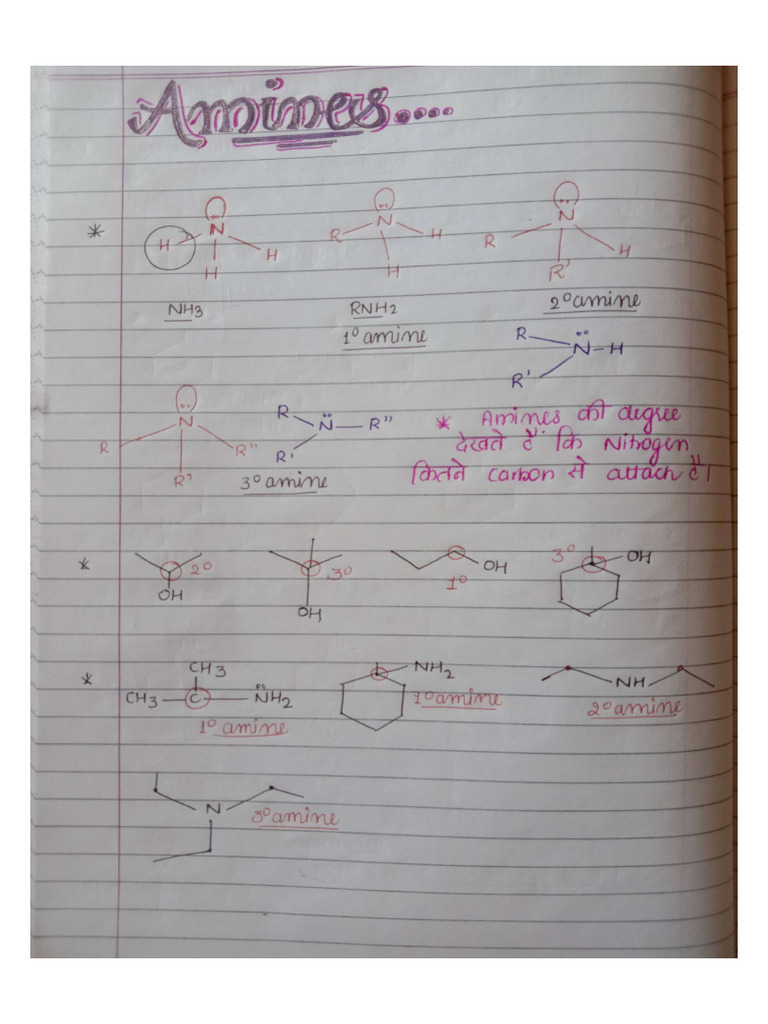 Amines....
* H N H H
R N H H
R N R' H
NH3
RNH2
1° amine
2° amine
R N-H R'
R N R' R"
R N R" R'
3° amine
* Amines की degree
देखते हैं कि Nitrogen
कितने carbon से attach है।
* 2° OH
3° OH
1° OH
3° OH
* CH3
CH3 C N̈H2
1° amine
NH2
1° amine
NH
2° amine
N
3° amine